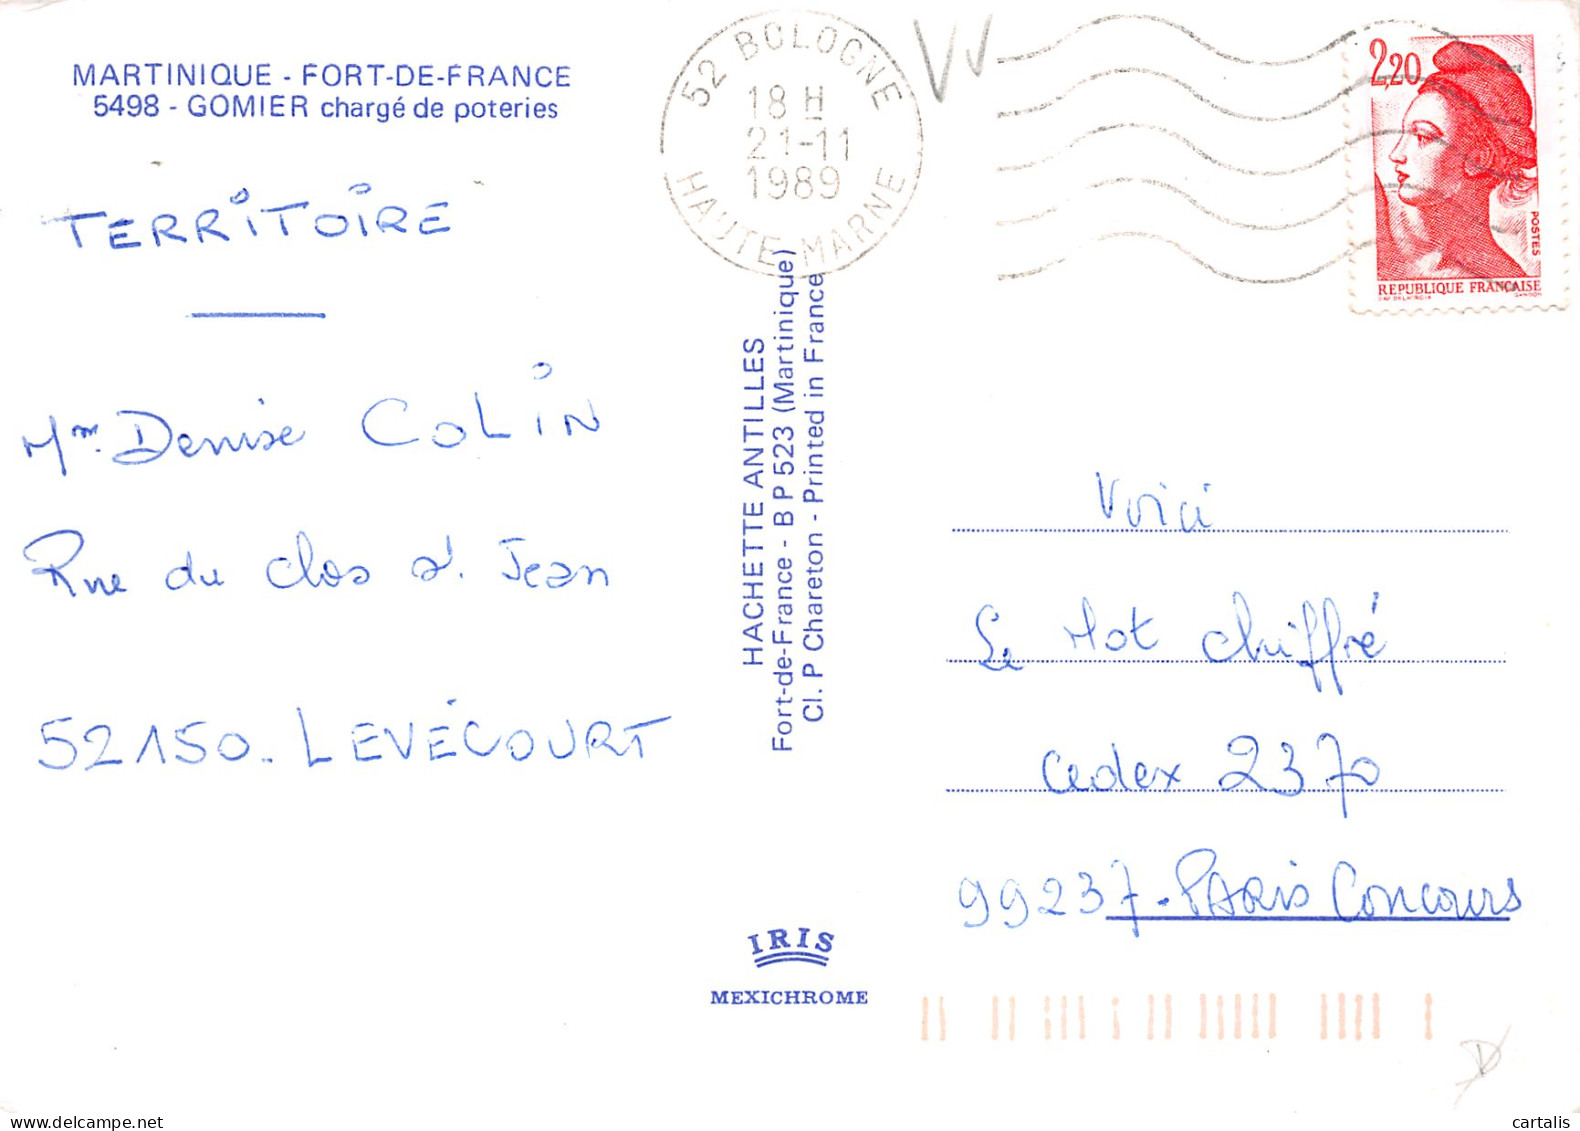 MARTINIQUE - FORT-DE-FRANCE
5498 - GOMIER chargé de poteries
TERRITOIRE
Mme Denise COLIN
Rue du Clos St. Jean
52150. LEVÉCOURT
52 BOLOGNE
18 H
21-11
1989
HAUTE-MARNE
2,20
POSTES
REPUBLIQUE FRANÇAISE
HACHETTE ANTILLES
Fort-de-France - B P 523 (Martinique)
Cl. P Chareton - Printed in France
Voici
Le Mot Chiffré
Cedex 2370
99237 - PARIS Concours
IRIS
MEXICHROME
cartalis